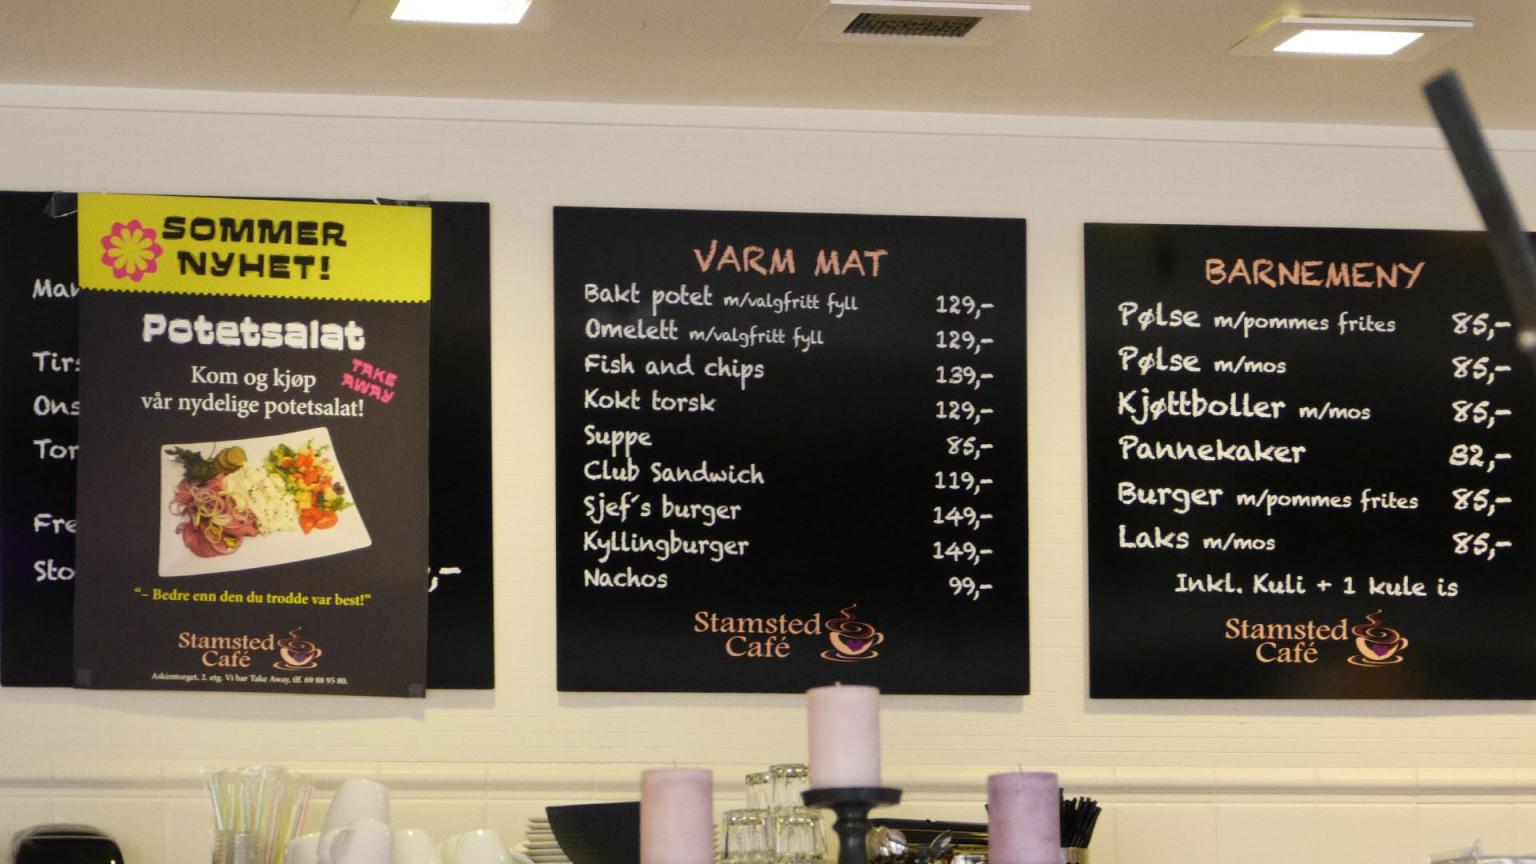 SOMMER
NYHET!
Potetsalat
TAKE
AWAY
Kom og kjøp
vår nydelige potetsalat!
"– Bedre enn den du trodde var best!"
Stamsted
Café
Askimtorget, 2. etg. Vi har Take Away, tlf. 69 88 95 80.
VARM MAT
Bakt potet m/valgfritt fyll 129,-
Omelett m/valgfritt fyll 129,-
Fish and chips 139,-
Kokt torsk 129,-
Suppe 85,-
Club Sandwich 119,-
Sjef´s burger 149,-
Kyllingburger 149,-
Nachos 99,-
Stamsted
Café
BARNEMENY
Pølse m/pommes frites 85,-
Pølse m/mos 85,-
Kjøttboller m/mos 85,-
Pannekaker 82,-
Burger m/pommes frites 85,-
Laks m/mos 85,-
Inkl. Kuli + 1 kule is
Stamsted
Café